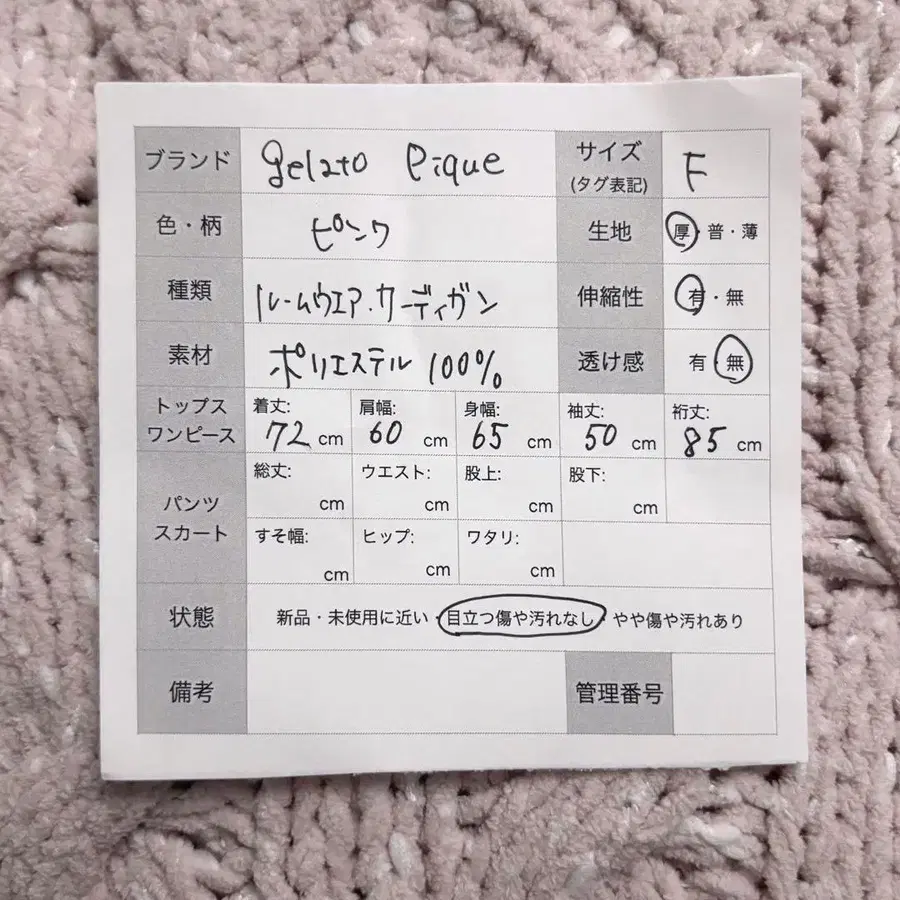 ブランド gelato pique サイズ (タグ表記) F
色・柄 ピンク 生地 厚・普・薄
種類 ルームウエア.カーディガン 伸縮性 有・無
素材 ポリエステル 100% 透け感 有・無
トップス ワンピース 着丈: 72 cm 肩幅: 60 cm 身幅: 65 cm 袖丈: 50 cm 裄丈: 85 cm
パンツ スカート 総丈: cm ウエスト: cm 股上: cm 股下: cm
すそ幅: cm ヒップ: cm ワタリ: cm
状態 新品・未使用に近い・目立つ傷や汚れなし・やや傷や汚れあり
備考 管理番号